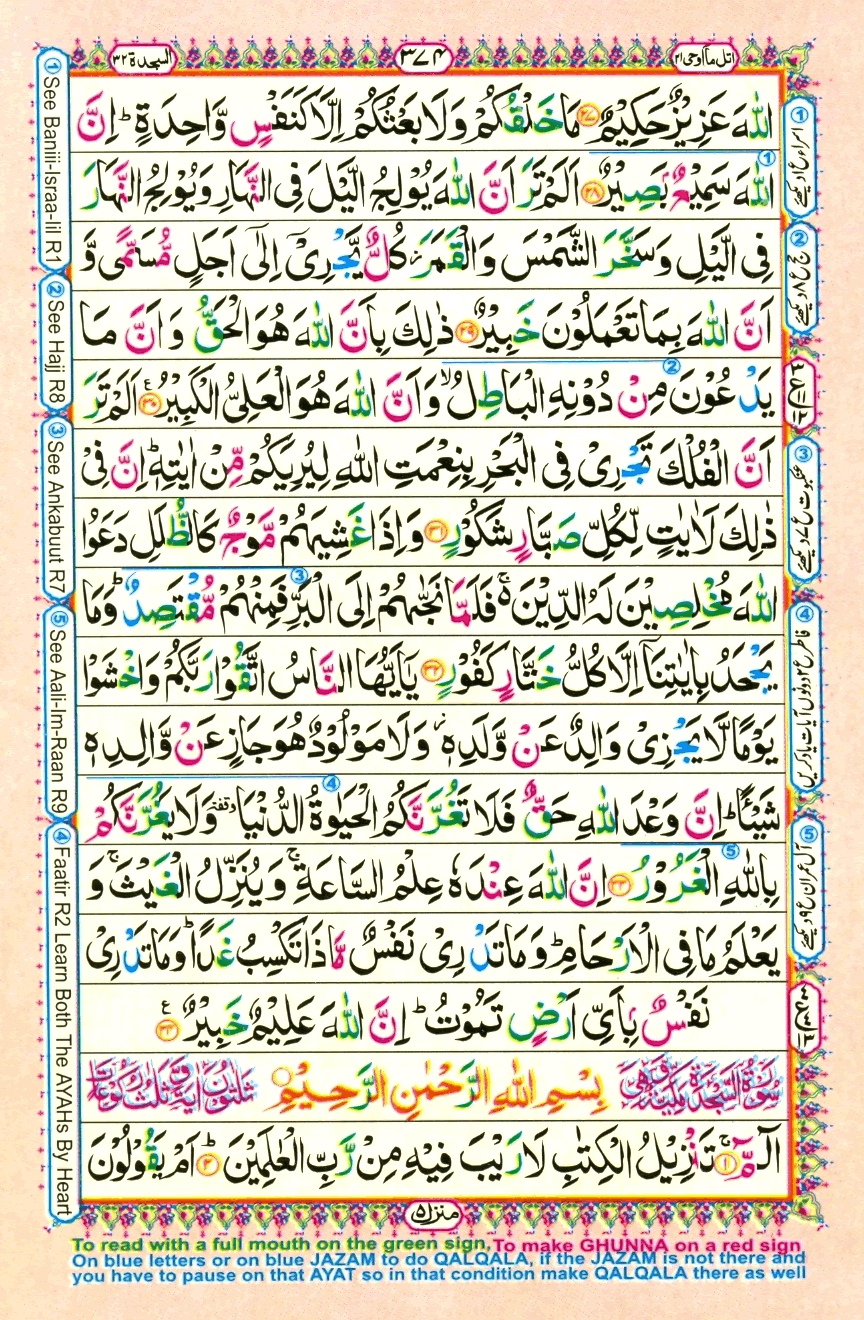 اتل مآ اوحی ۲۱
۳۷۴
السجدة ۳۲
اللّٰهَ عَزِيْزٌ حَكِيْمٌ ۝۲۷ مَا خَلْقُكُمْ وَلَا بَعْثُكُمْ اِلَّا كَنَفْسٍ وَّاحِدَةٍ ؕ اِنَّ
اللّٰهَ سَمِيْعٌۢ بَصِيْرٌ ۝۲۸ اَلَمْ تَرَ اَنَّ اللّٰهَ يُوْلِجُ الَّيْلَ فِى النَّهَارِ وَيُوْلِجُ النَّهَارَ
فِى الَّيْلِ وَسَخَّرَ الشَّمْسَ وَالْقَمَرَ ؗ كُلٌّ يَّجْرِىْۤ اِلٰٓى اَجَلٍ مُّسَمًّى وَّ
اَنَّ اللّٰهَ بِمَا تَعْمَلُوْنَ خَبِيْرٌ ۝۲۹ ذٰلِكَ بِاَنَّ اللّٰهَ هُوَ الْحَقُّ وَاَنَّ مَا
يَدْعُوْنَ مِنْ دُوْنِهِ الْبَاطِلُ ۙ وَاَنَّ اللّٰهَ هُوَ الْعَلِىُّ الْكَبِيْرُ ۝۳۰ اَلَمْ تَرَ
اَنَّ الْفُلْكَ تَجْرِىْ فِى الْبَحْرِ بِنِعْمَتِ اللّٰهِ لِيُرِيَكُمْ مِّنْ اٰيٰتِهٖ ؕ اِنَّ فِىْ
ذٰلِكَ لَاٰيٰتٍ لِّكُلِّ صَبَّارٍ شَكُوْرٍ ۝۳۱ وَاِذَا غَشِيَهُمْ مَّوْجٌ كَالظُّلَلِ دَعَوُا
اللّٰهَ مُخْلِصِيْنَ لَهُ الدِّيْنَ ۚ فَلَمَّا نَجّٰىهُمْ اِلَى الْبَرِّ فَمِنْهُمْ مُّقْتَصِدٌ ؕ وَمَا
يَجْحَدُ بِاٰيٰتِنَاۤ اِلَّا كُلُّ خَتَّارٍ كَفُوْرٍ ۝۳۲ يٰۤاَيُّهَا النَّاسُ اتَّقُوْا رَبَّكُمْ وَاخْشَوْا
يَوْمًا لَّا يَجْزِىْ وَالِدٌ عَنْ وَّلَدِهٖ ؗ وَلَا مَوْلُوْدٌ هُوَ جَازٍ عَنْ وَّالِدِهٖ
شَيْئًا ؕ اِنَّ وَعْدَ اللّٰهِ حَقٌّ فَلَا تَغُرَّنَّكُمُ الْحَيٰوةُ الدُّنْيَا وقفة وَلَا يَغُرَّنَّكُمْ
بِاللّٰهِ الْغَرُوْرُ ۝۳۳ اِنَّ اللّٰهَ عِنْدَهٗ عِلْمُ السَّاعَةِ ۚ وَيُنَزِّلُ الْغَيْثَ ۚ وَ
يَعْلَمُ مَا فِى الْاَرْحَامِ ؕ وَمَا تَدْرِىْ نَفْسٌ مَّاذَا تَكْسِبُ غَدًا ؕ وَمَا تَدْرِىْ
نَفْسٌۢ بِاَىِّ اَرْضٍ تَمُوْتُ ؕ اِنَّ اللّٰهَ عَلِيْمٌ خَبِيْرٌ ۝۳۴ ع
سُوْرَةُ السَّجْدَةِ مَكِّيَّةٌ وَّهِىَ بِسْمِ اللّٰهِ الرَّحْمٰنِ الرَّحِيْمِ ثَلٰثُوْنَ اٰيَةً وَّثَلٰثُ رُكُوْعَاتٍ
الٓمّٓ ۝۱ۚ تَنْزِيْلُ الْكِتٰبِ لَا رَيْبَ فِيْهِ مِنْ رَّبِّ الْعٰلَمِيْنَ ۝۲ؕ اَمْ يَقُوْلُوْنَ
منزل ۵
① اسراء ع ۱ دیکھئے
② حج ع ۸ دیکھئے
③ عنکبوت ع ۷ دیکھئے
④ فاطر ع ۲ دونوں آیات یاد کریں
⑤ آل عمران ع ۹ دیکھئے
① See Baniii-Israa-Iil R1
② See Hajj R8
③ See Ankabuut R7
⑤ See Aali-Im-Raan R9
④ Faatir R2 Learn Both The AYAHs By Heart
To read with a full mouth on the green sign, To make GHUNNA on a red sign
On blue letters or on blue JAZAM to do QALQALA, if the JAZAM is not there and
you have to pause on that AYAT so in that condition make QALQALA there as well